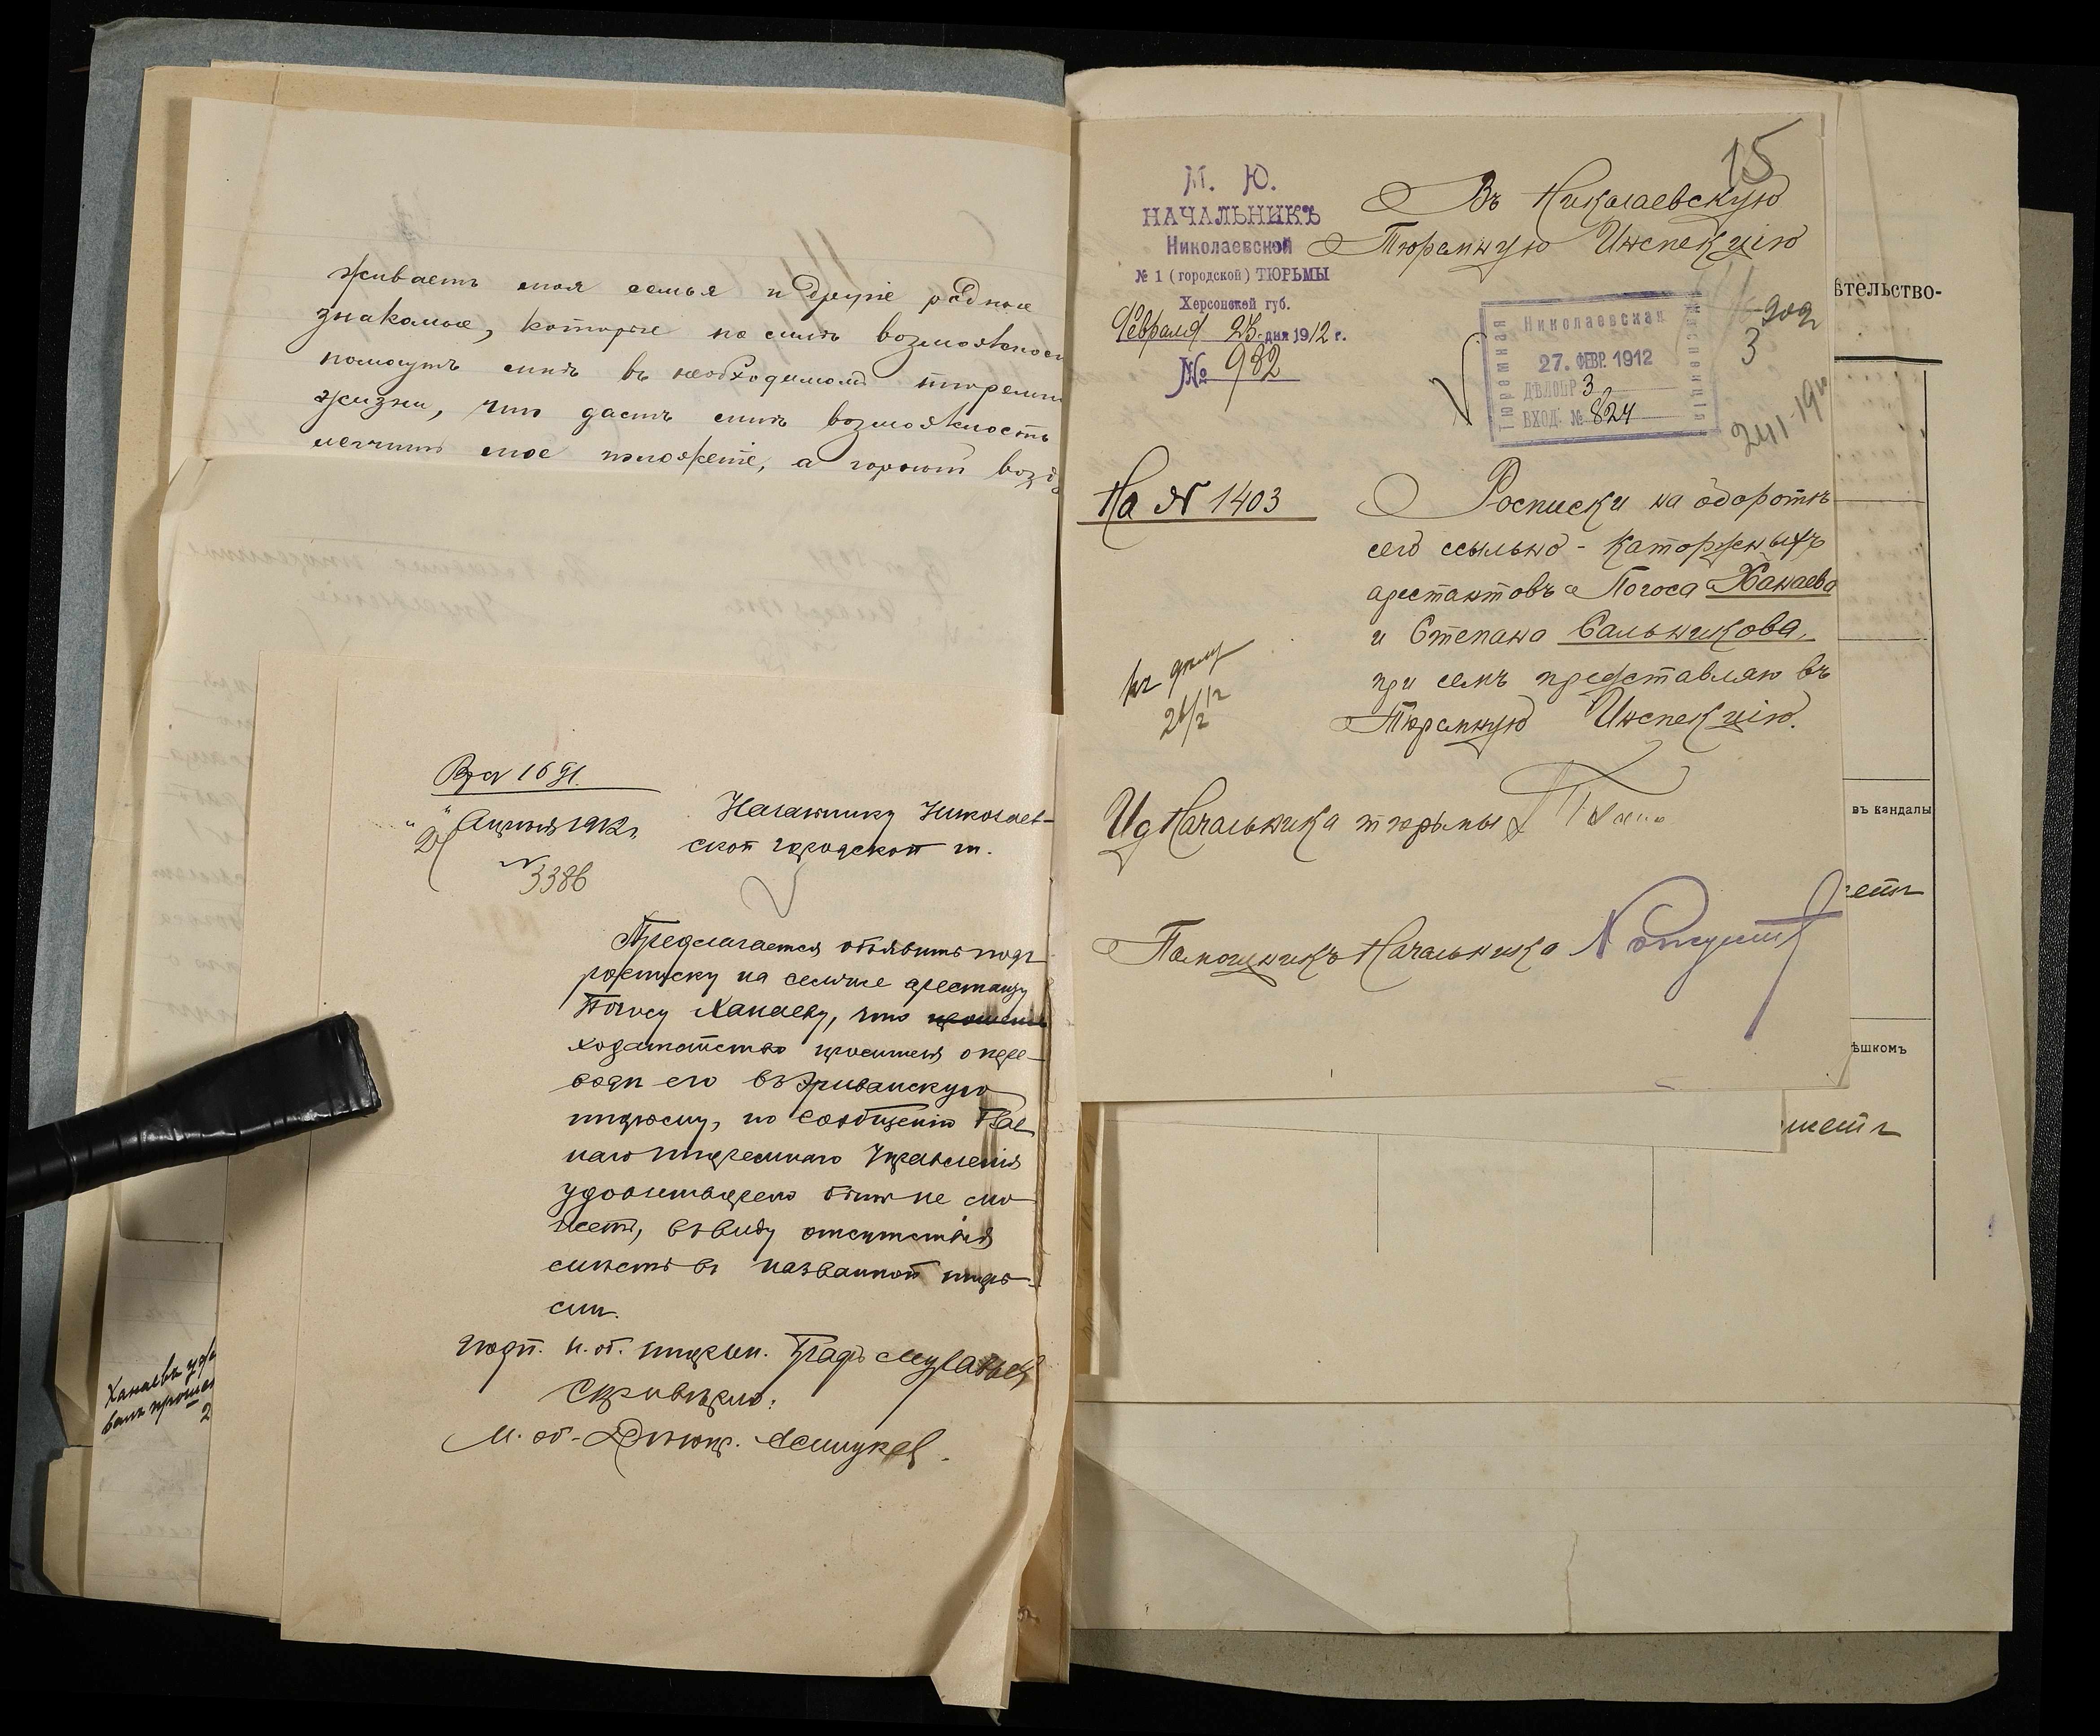 живаетъ моя семья и другіе родные
знакомые, которые по силѣ возможност
помогутъ мнѣ въ необходимой тюремн
жизни, что дастъ мнѣ возможность
легчить мое положеніе, а горный возд
1691
" 2 " Апрѣля 1912 г.
№ 3386
Начальнику Николаев-
ской городской т.
Предлагается объявить подъ
росписку на семъ же арестанту
Погосу Ханаеву, что
ходатайство о пере-
водѣ его въ Эриванскую
тюрьму, по сообщенію Глав
наго Тюремнаго Управленія
удовлетворено быть не мо-
жетъ, въ виду отсутствія
мѣстъ въ названной тюрь-
мѣ.
подп. И. об. тюремн.
Свѣрилъ:
И. об. Дѣлопр.
Ханаевъ
валъ прошен
2
15
М. Ю.
НАЧАЛЬНИКЪ
Николаевской
№ 1 (городской) ТЮРЬМЫ
Херсонской губ.
Февраля 25 дня 1912 г.
№ 982
Въ Николаевскую
Тюремную Инспекцію
Николаевская
Тюремная
Инспекція
27. ФЕВР. 1912
ДѢЛОПР 3
ВХОД. № 824
3
На № 1403
Росписки на оборотѣ
сего ссыльно-каторжныхъ
арестантовъ Погоса Ханаева
и Степана Сальникова,
при семъ представляю въ
Тюремную Инспекцію.
къ дѣлу
26/2 12
Ид Начальника тюрьмы
Помощникъ Начальника
ѣтельство-
въ кандалы
ѣшкомъ